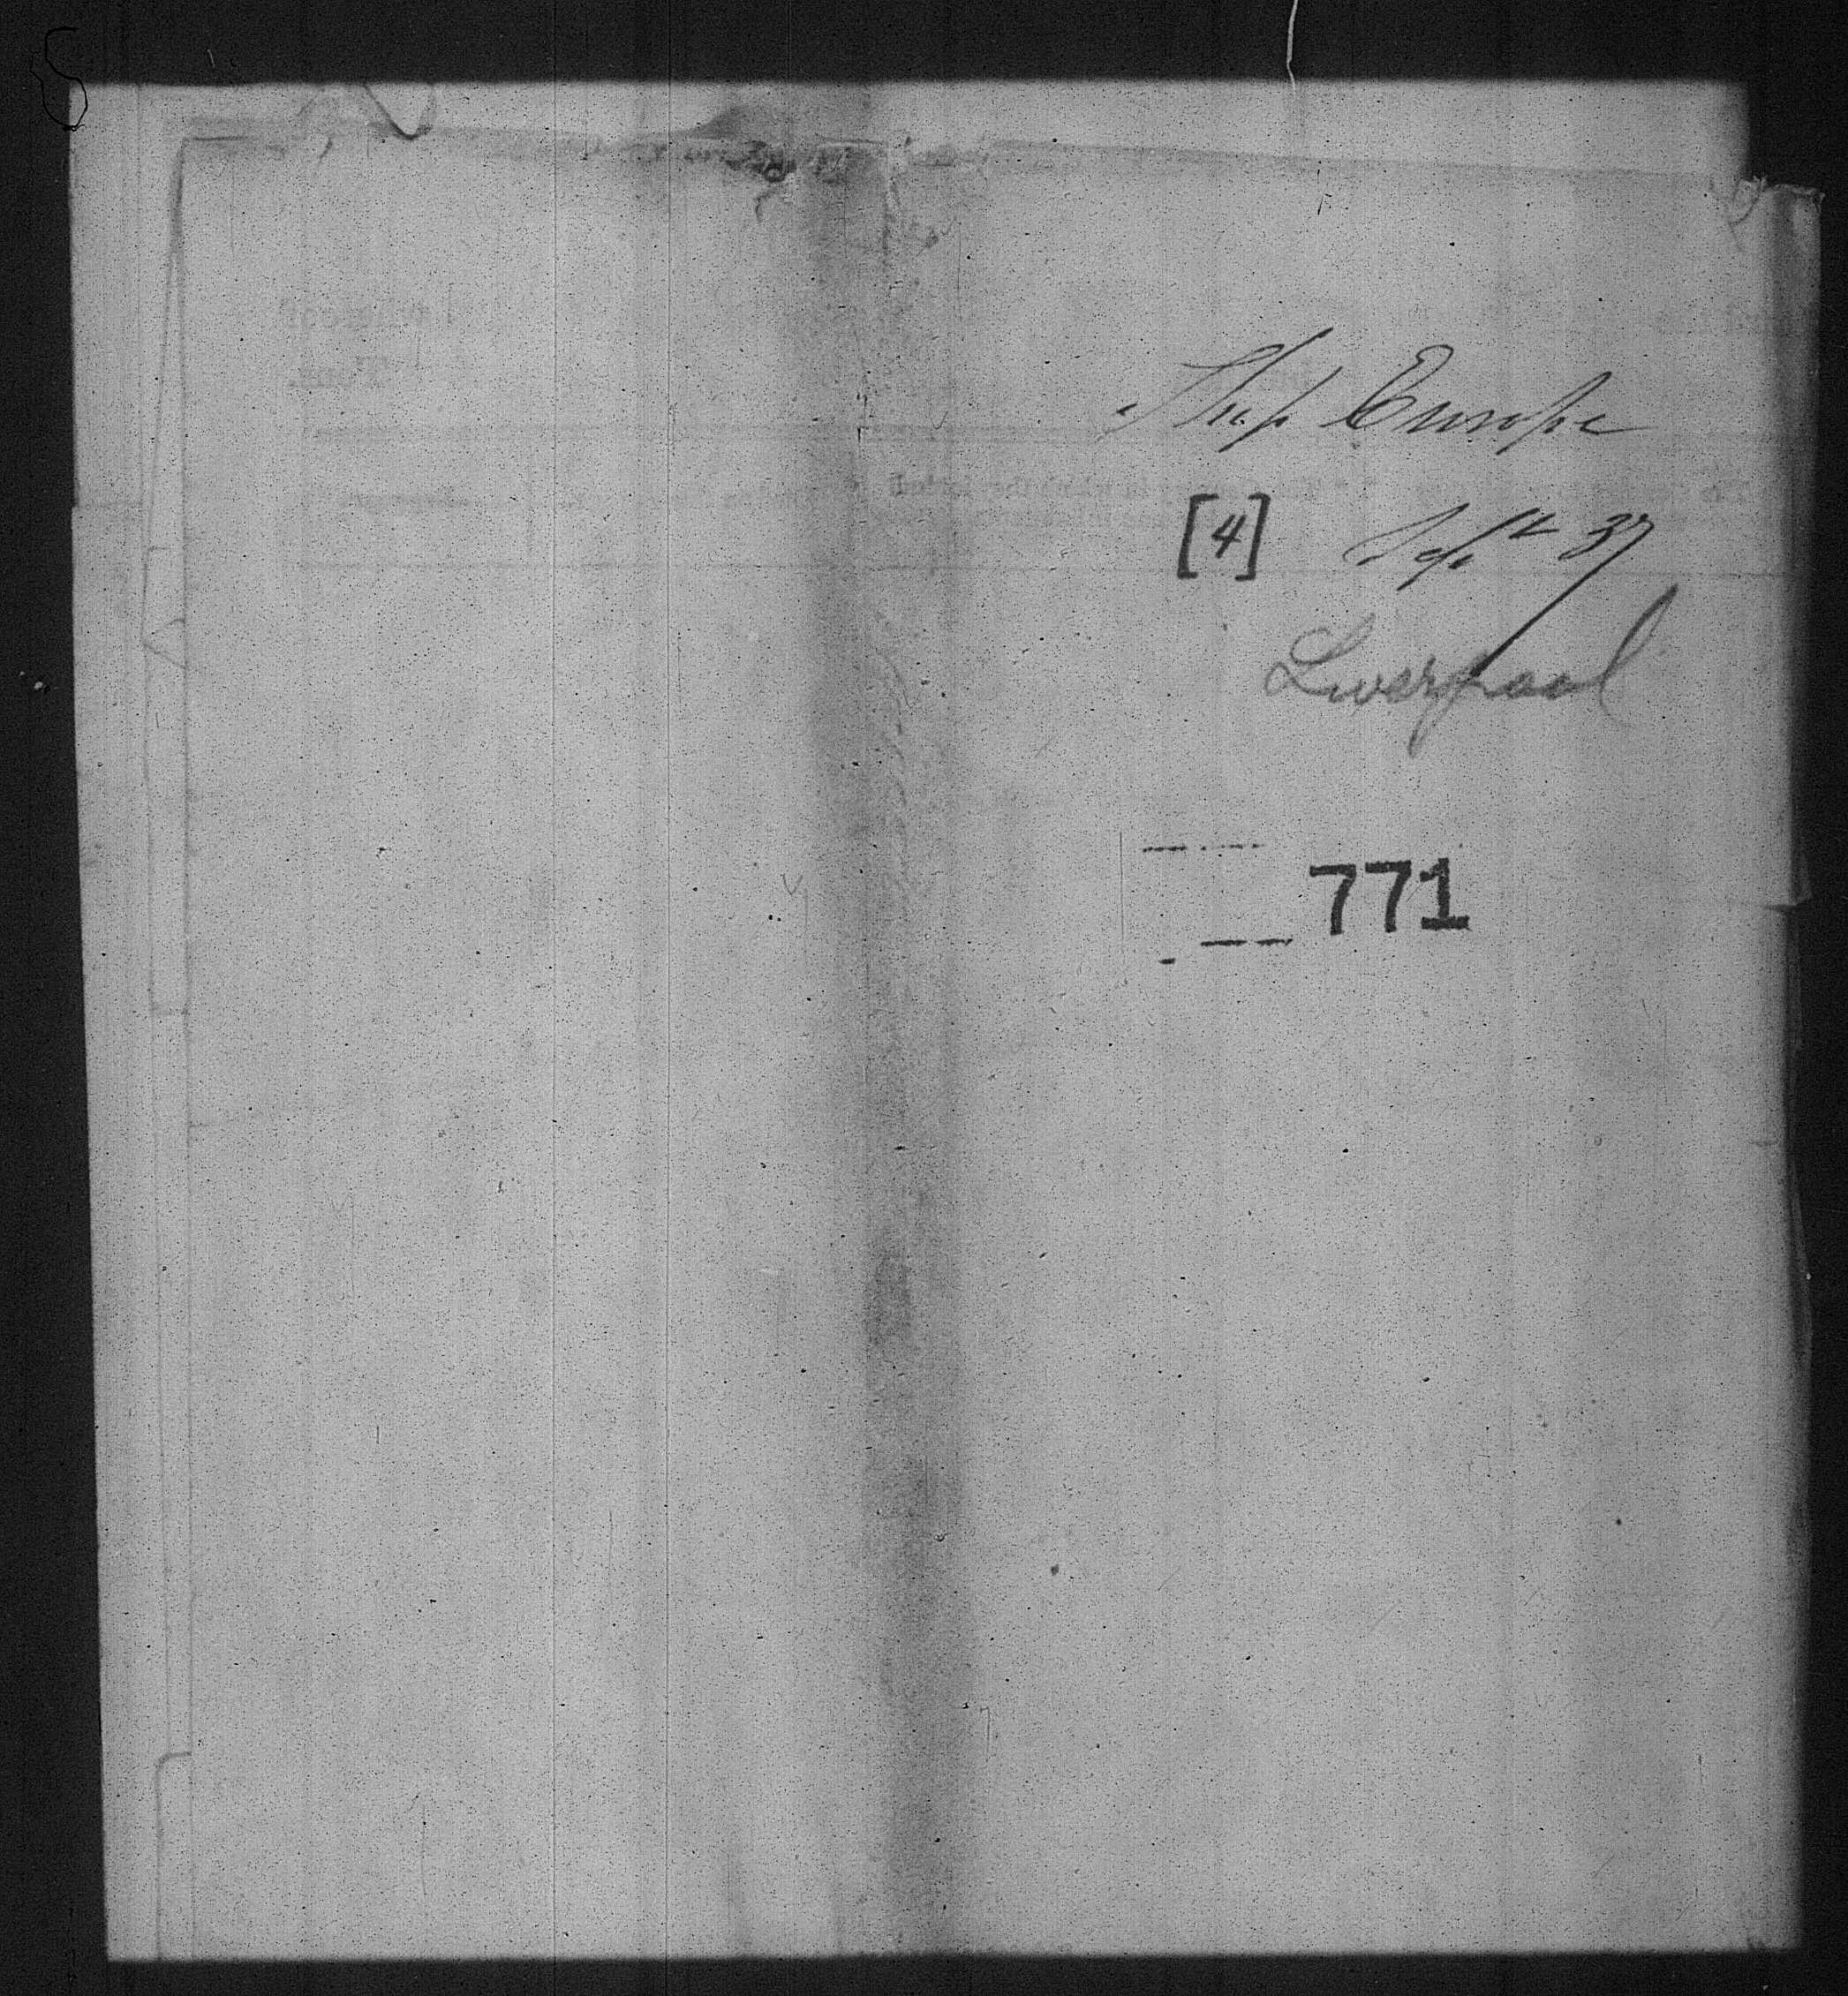 Ship Europe
[4] Sept 37
Liverpool
771